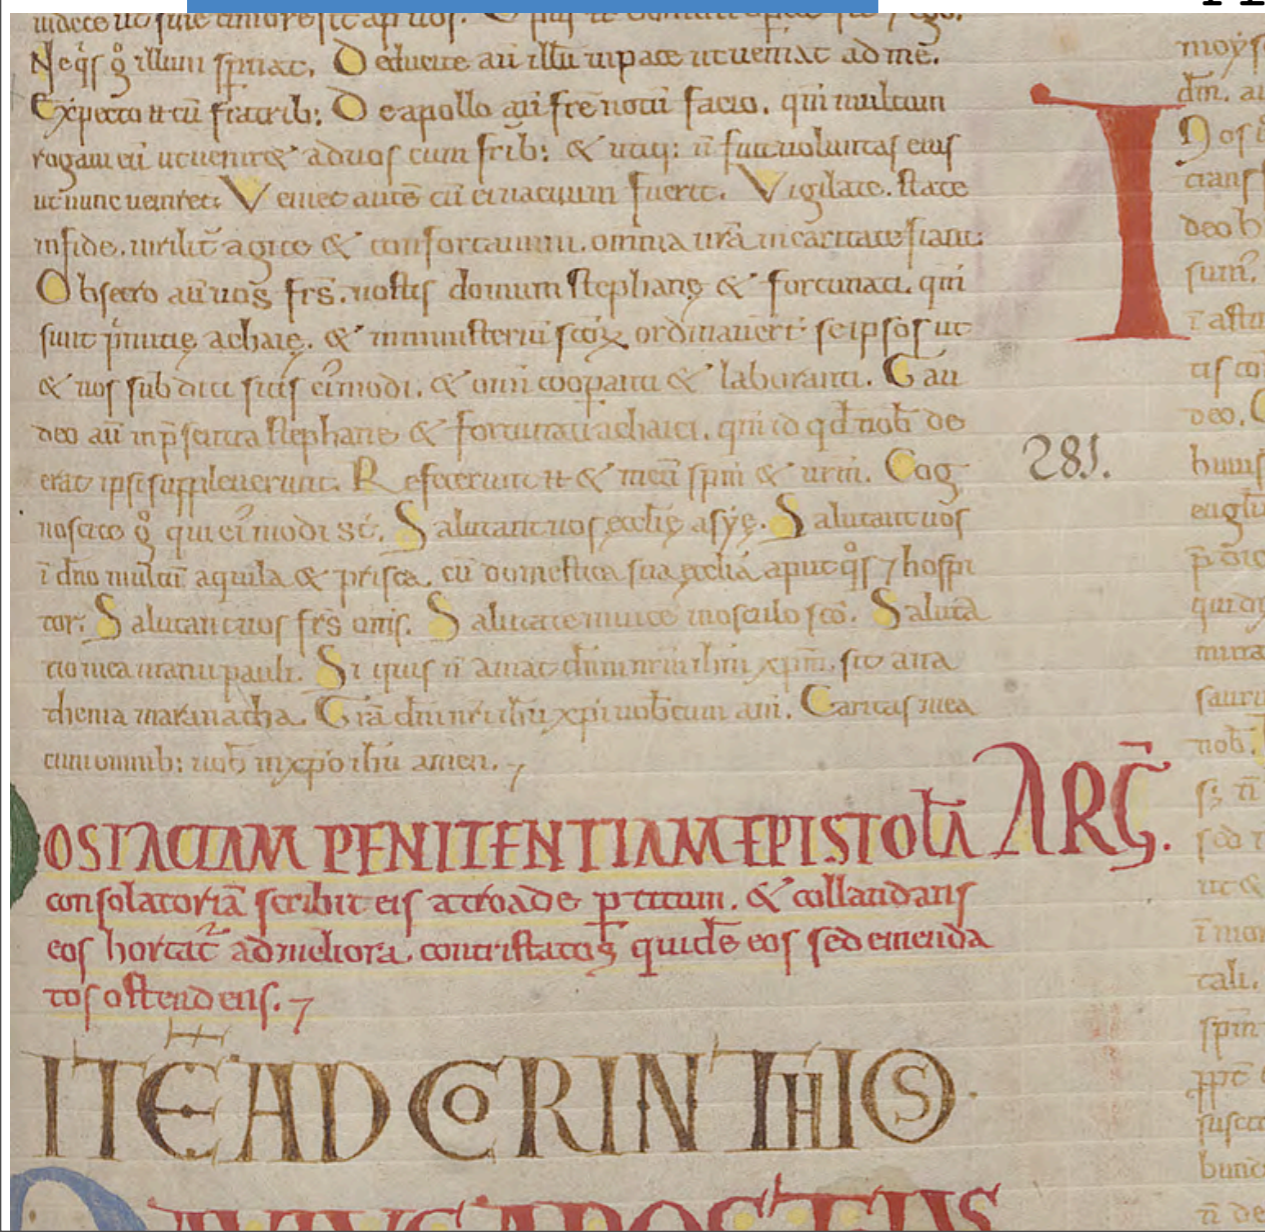 Neq̊s g̊ illum sp̄nat. Deducite aū illū inpace utueniat ad me.
Expecto eū cū fratrib; De apollo aū fr̄e notū facio. qm̄ multum
rogaui eū utueniret aduos cum frib; & utiq; ñ fuit uoluntas eius
ut nunc ueniret. Veniet autē cū ei uacuum fuerit. Vigilate. state
infide. uirilit̄ agite & confortamini. omnia ūra incaritate fiant.
Obsecro aū uos fr̄s. nostis domum stephanę & fortunati. qm̄
sunt p̄mitię achaię. & inministeriū sc̄oꝝ ordinauert̄ seipsos ut
& uos subditi sitis ei'modi. & omi coopanti & laboranti. Gau
deo aū inp̄sentia stephane & fortunati achaici. qm̄ id qd̄ nob̄ de
erat ipsi suppleuerunt. Refecerunt & meū spm̄ & urm̄. Cog
noscite g̊ qui ei'modi st̄. Salutant uos ecclię asyę. Salutant uos
ī dn̄o multū aquila & prisca. cū domestica sua ecclia aput q̊s 7 hospi
tor. Salutant uos fr̄s om̄s. Salutate inuice inosculo sc̄o. Saluta
tio mea manu pauli. Si quis ñ amat dn̄m nr̄m ihm̄ xpm̄. sit ana
thema maranatha. Grā dn̄i nr̄i ihū xpi uobcum am̄. Caritas mea
cum omnib; uob̄ inxpo ihū amen. 7
OSTACTAM PENITENTIAM EPISTOLĀ ARḠ.
consolatoriā scribit eis atroade p titum. & collaudans
eos hortat̄ admeliora. contristatos quidē eos sed emenda
tos ostendens. 7
ITĒ AD CORINTHIOS.
281.
I
moys
dm̄. au
Nos
trans
deo h
sum̄.
ī astu
tis co
deo.
huius
euagl̄i
p̄dic
nob̄.
ut &
ī mor
tali.
spm̄
ppt̄
ñ de